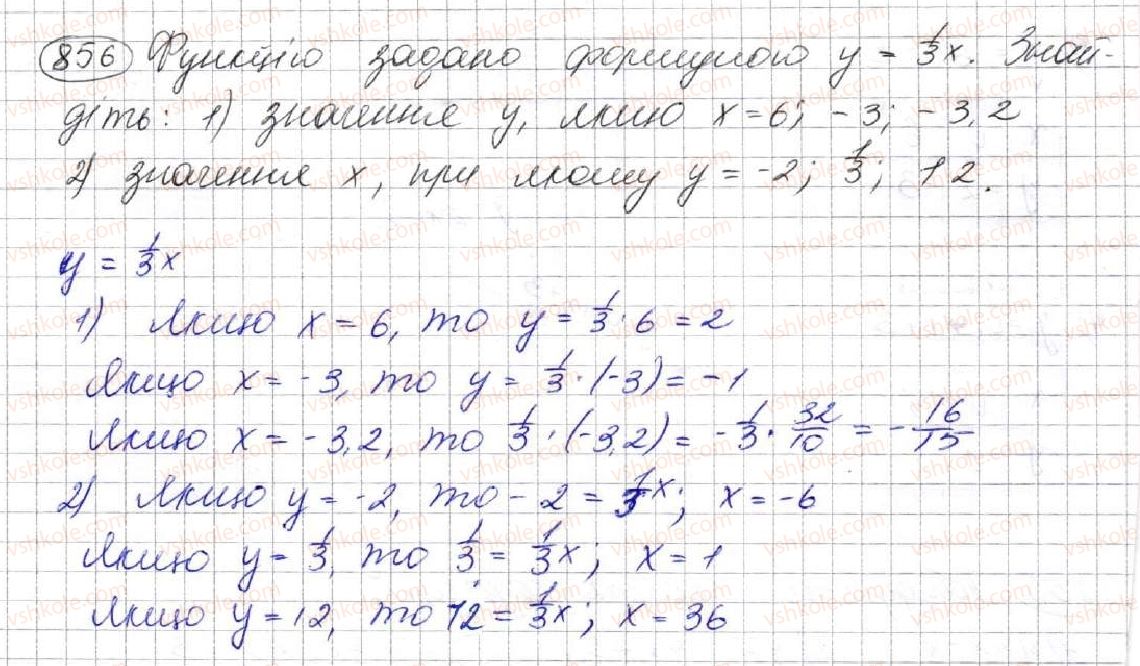 856 Функцію задано формулою y = 1/3 x. Знай-
діть: 1) значення y, якщо x = 6; -3; -3,2
2) значення x, при якому y = -2; 1/3; 12.
y = 1/3 x
1) Якщо x = 6, то y = 1/3 · 6 = 2
Якщо x = -3, то y = 1/3 · (-3) = -1
Якщо x = -3,2, то 1/3 · (-3,2) = -1/3 · 32/10 = -16/15
2) Якщо y = -2, то -2 = 1/3 x; x = -6
Якщо y = 1/3, то 1/3 = 1/3 x; x = 1
Якщо y = 12, то 12 = 1/3 x; x = 36
vshkole.com